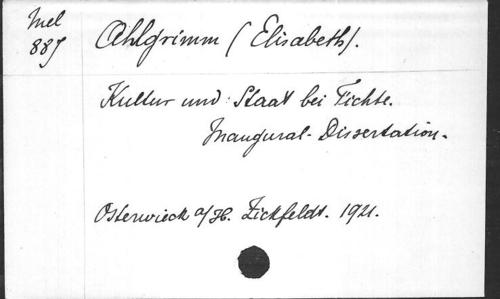 Mel
885
Ahlgrimm (Elisabeth).
Kultur und Staat bei Fichte.
Inaugural-Dissertation.
Osterwieck a/H. Zickfeldt. 1921.